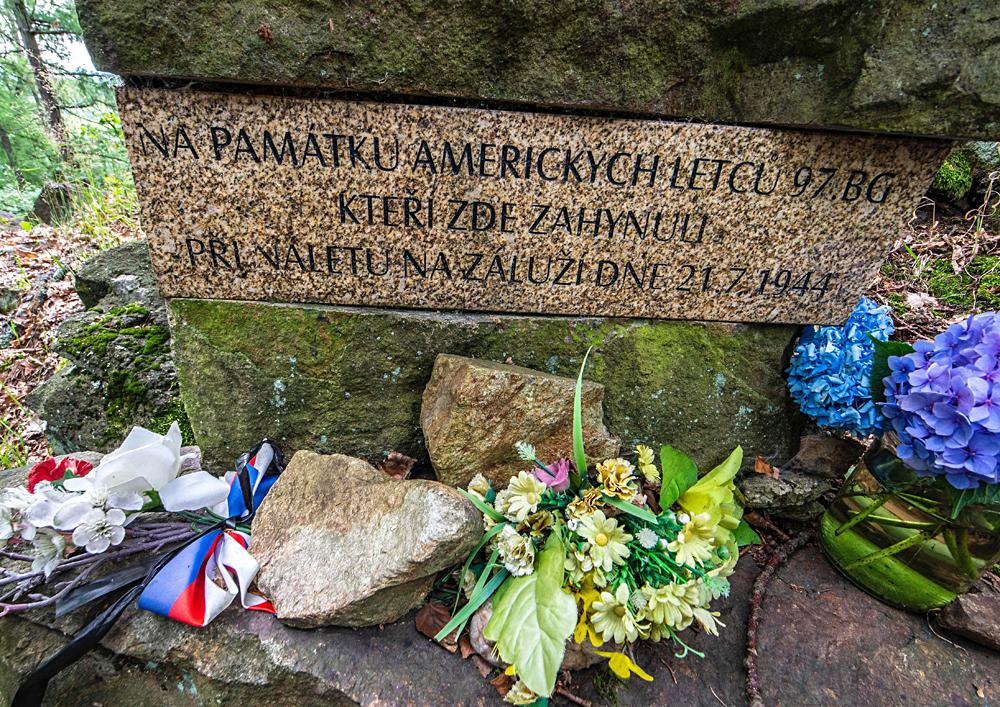 NA PAMÁTKU AMERICKÝCH LETCŮ 97.BG
KTEŘÍ ZDE ZAHYNULI
PŘI NÁLETU NA ZÁLUŽÍ DNE 21.7.1944